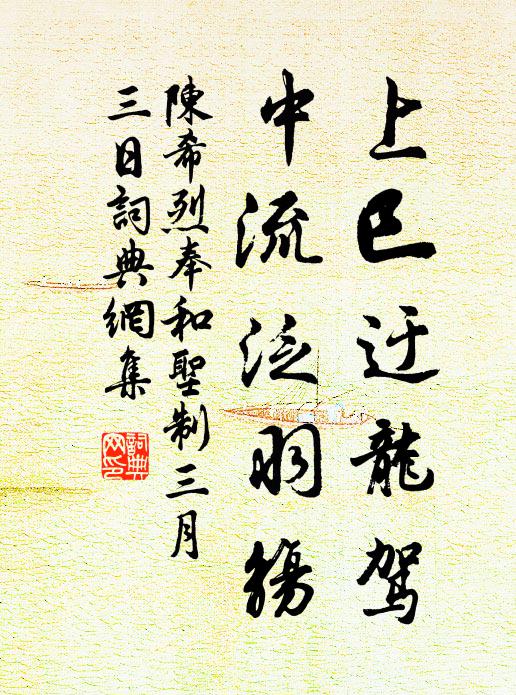 上巳迂龍駕
中流泛羽觴
陳希烈奉和聖制三月
三日詞典網集
詞典網印